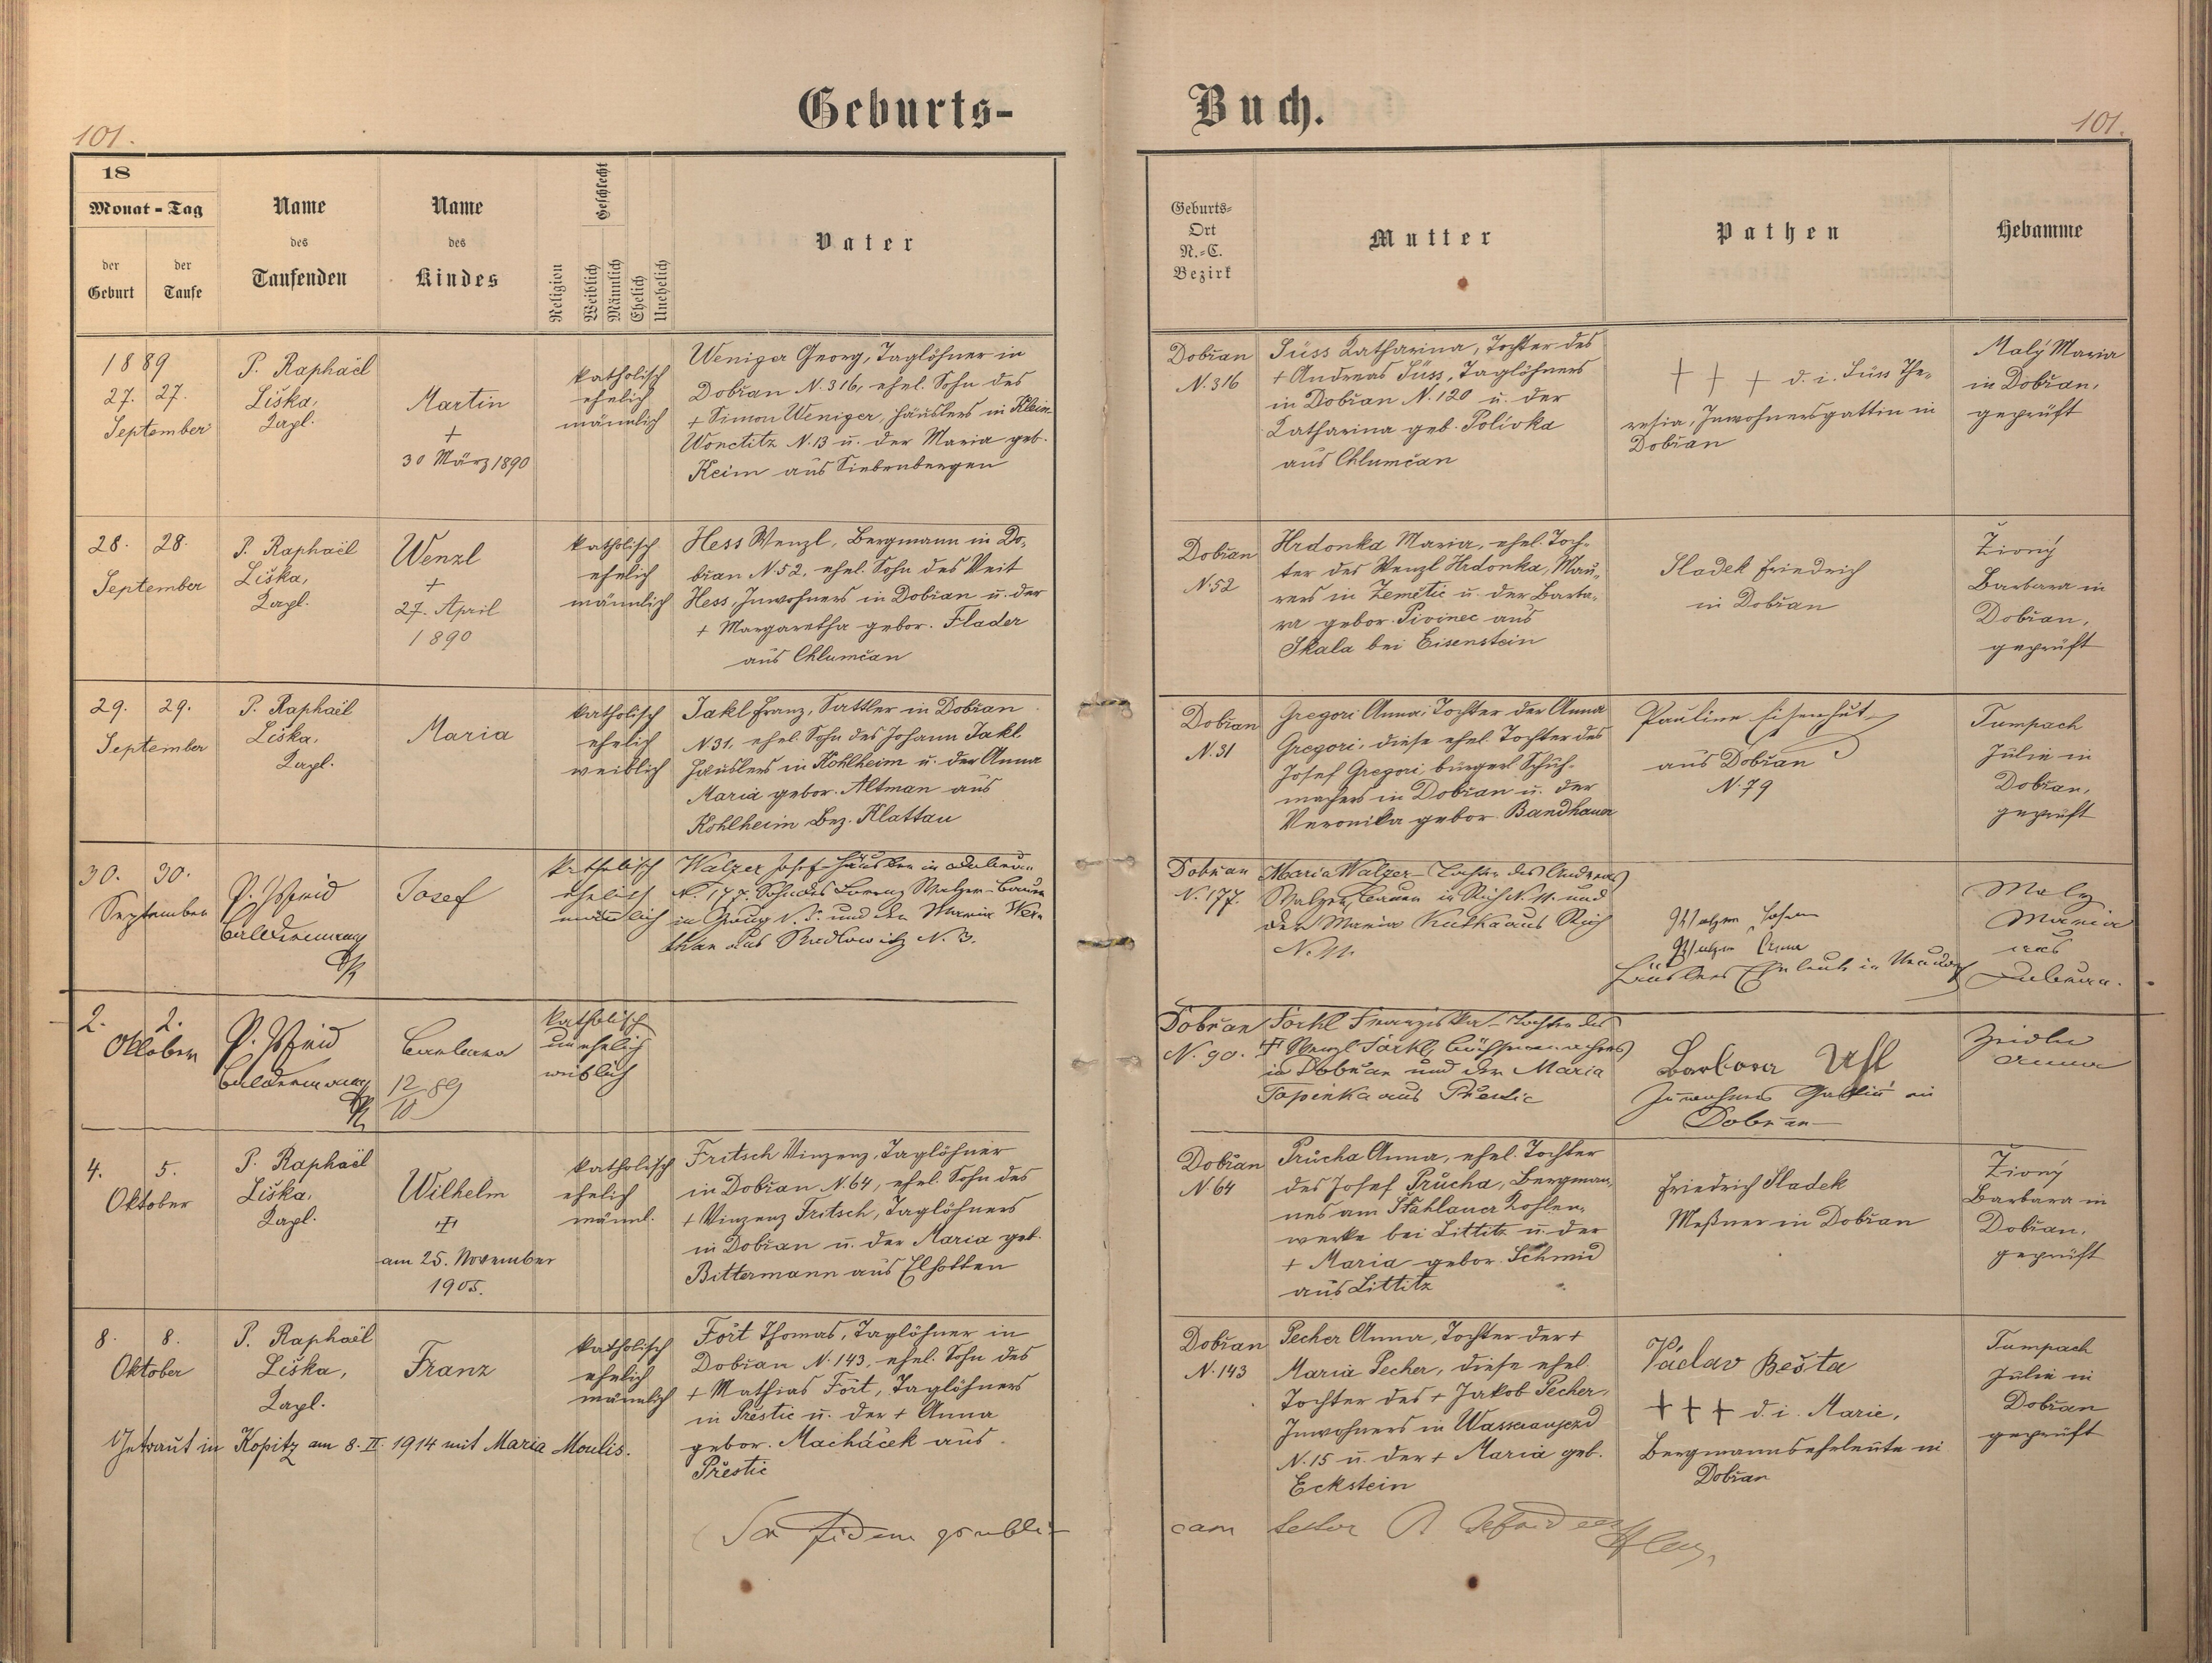 Geburts-
Buch.
101.
101.
18
Monat - Tag
der Geburt
der Taufe
Name des Taufenden
Name des Kindes
Religion
Geschlecht
Weiblich
Männlich
Ehelich
Unehelich
Vater
Geburts-Ort N.-C. Bezirk
Mutter
Pathen
Hebamme
1889
27. 27.
September
P. Raphaël
Liška,
Kapl.
Martin
+
30 März 1890
katholisch
ehelich
männlich
Weniger Georg, Taglöhner in
Dobřan N. 316, ehel. Sohn des
+ Simon Weniger, Häuslers in Klein
Wonetitz N. 13 u. der Maria geb.
Keim aus Siebenbergen
Dobřan
N. 316
Süss Katharina, Tochter des
+ Andreas Süss, Taglöhners
in Dobřan N. 120 u. der
Katharina geb. Polívka
aus Chlumčan
+ + + d. i. Süss The-
resia, Inwohnersgattin in
Dobřan
Malý Maria
in Dobřan,
geprüft
28. 28.
September
P. Raphaël
Liška,
Kapl.
Wenzl
+
27. April
1890
katholisch
ehelich
männlich
Hess Wenzl, Bergmann in Do-
břan N. 52, ehel. Sohn des Veit
Hess, Inwohners in Dobřan u. der
+ Margaretha gebor. Flader
aus Chlumčan
Dobřan
N. 52
Hrdonka Maria, ehel. Toch-
ter des Wenzl Hrdonka, Mau-
rers in Zemětic u. der Barba-
ra gebor. Pivinec aus
Skala bei Eisenstein
Sladek Friedrich
in Dobřan
Živný
Barbara in
Dobřan,
geprüft
29. 29.
September
P. Raphaël
Liška,
Kapl.
Maria
katholisch
ehelich
weiblich
Jakl Franz, Sattler in Dobřan
N. 31, ehel. Sohn des Johann Jakl
Häuslers in Kohlheim u. der Anna
Maria gebor. Altman aus
Kohlheim Bez. Klattau
Dobřan
N. 31
Gregori Anna, Tochter der Anna
Gregori, diese ehel. Tochter des
Josef Gregori, bürgerl. Schuh-
machers in Dobřan u. der
Veronika gebor. Bandhauer
Pauline Eisenhut
aus Dobřan
N. 79
Tumpach
Julie in
Dobřan,
geprüft
30. 30.
September
P.
Josef
katholisch
ehelich
männlich
Walzer Josef Häusler in Dobřan
N. 177. Sohn des Lorenz Walzer Bauer
in N. 5. und der Maria
aus Radlowitz N. 3.
Dobřan
N. 177.
Maria Walzer Tochter des Andreas
Walzer, Bauer in N. 11. und
der Maria Kutka aus
N. 11.
Walzer Johann
Walzer Anna
Häuslers Eheleute in
Maly
Maria
aus
Dobřan.
2. 2.
Oktober
P.
Barbara
12/10 89
katholisch
unehelich
weiblich
Dobřan
N. 90.
Franziska Tochter des
+ Wenzl
in Dobřan und der Maria
Papinka aus Přestic
Barbora
Inwohners Gattin in
Dobřan
Zeidler
Anna
4. 5.
Oktober
P. Raphaël
Liška,
Kapl.
Wilhelm
+
am 25. November
1905.
katholisch
ehelich
männl.
Fritsch Vinzenz, Taglöhner
in Dobřan N. 64, ehel. Sohn des
+ Vinzenz Fritsch, Taglöhners
in Dobřan u. der Maria geb.
Bittermann aus Elhotten
Dobřan
N. 64
Průcha Anna, ehel. Tochter
des Josef Průcha, Bergman-
nes am Stáhlauer Kohlen-
werke bei Littitz u. der
+ Maria gebor. Schmid
aus Littitz
Friedrich Sladek
Meßner in Dobřan
Živný
Barbara in
Dobřan,
geprüft
8. 8.
Oktober
P. Raphaël
Liška,
Kapl.
Franz
katholisch
ehelich
männlich
Fořt Thomas, Taglöhner in
Dobřan N. 143, ehel. Sohn des
+ Mathias Fořt, Taglöhners
in Přestic u. der + Anna
gebor. Macháček aus
Přestic
Getraut in Kopitz am 8. II. 1914 mit Maria Moulis.
Dobřan
N. 143
Pecher Anna, Tochter der +
Maria Pecher, diese ehel.
Tochter des + Jakob Pecher,
Inwohners in Wasseraujezd
N. 15 u. der + Maria geb.
Eckstein
Václav Bešta
+ + + d. i. Marie,
Bergmannseheleute in
Dobřan
Tumpach
Julie in
Dobřan
geprüft
In fidem publi-
cam testor P.